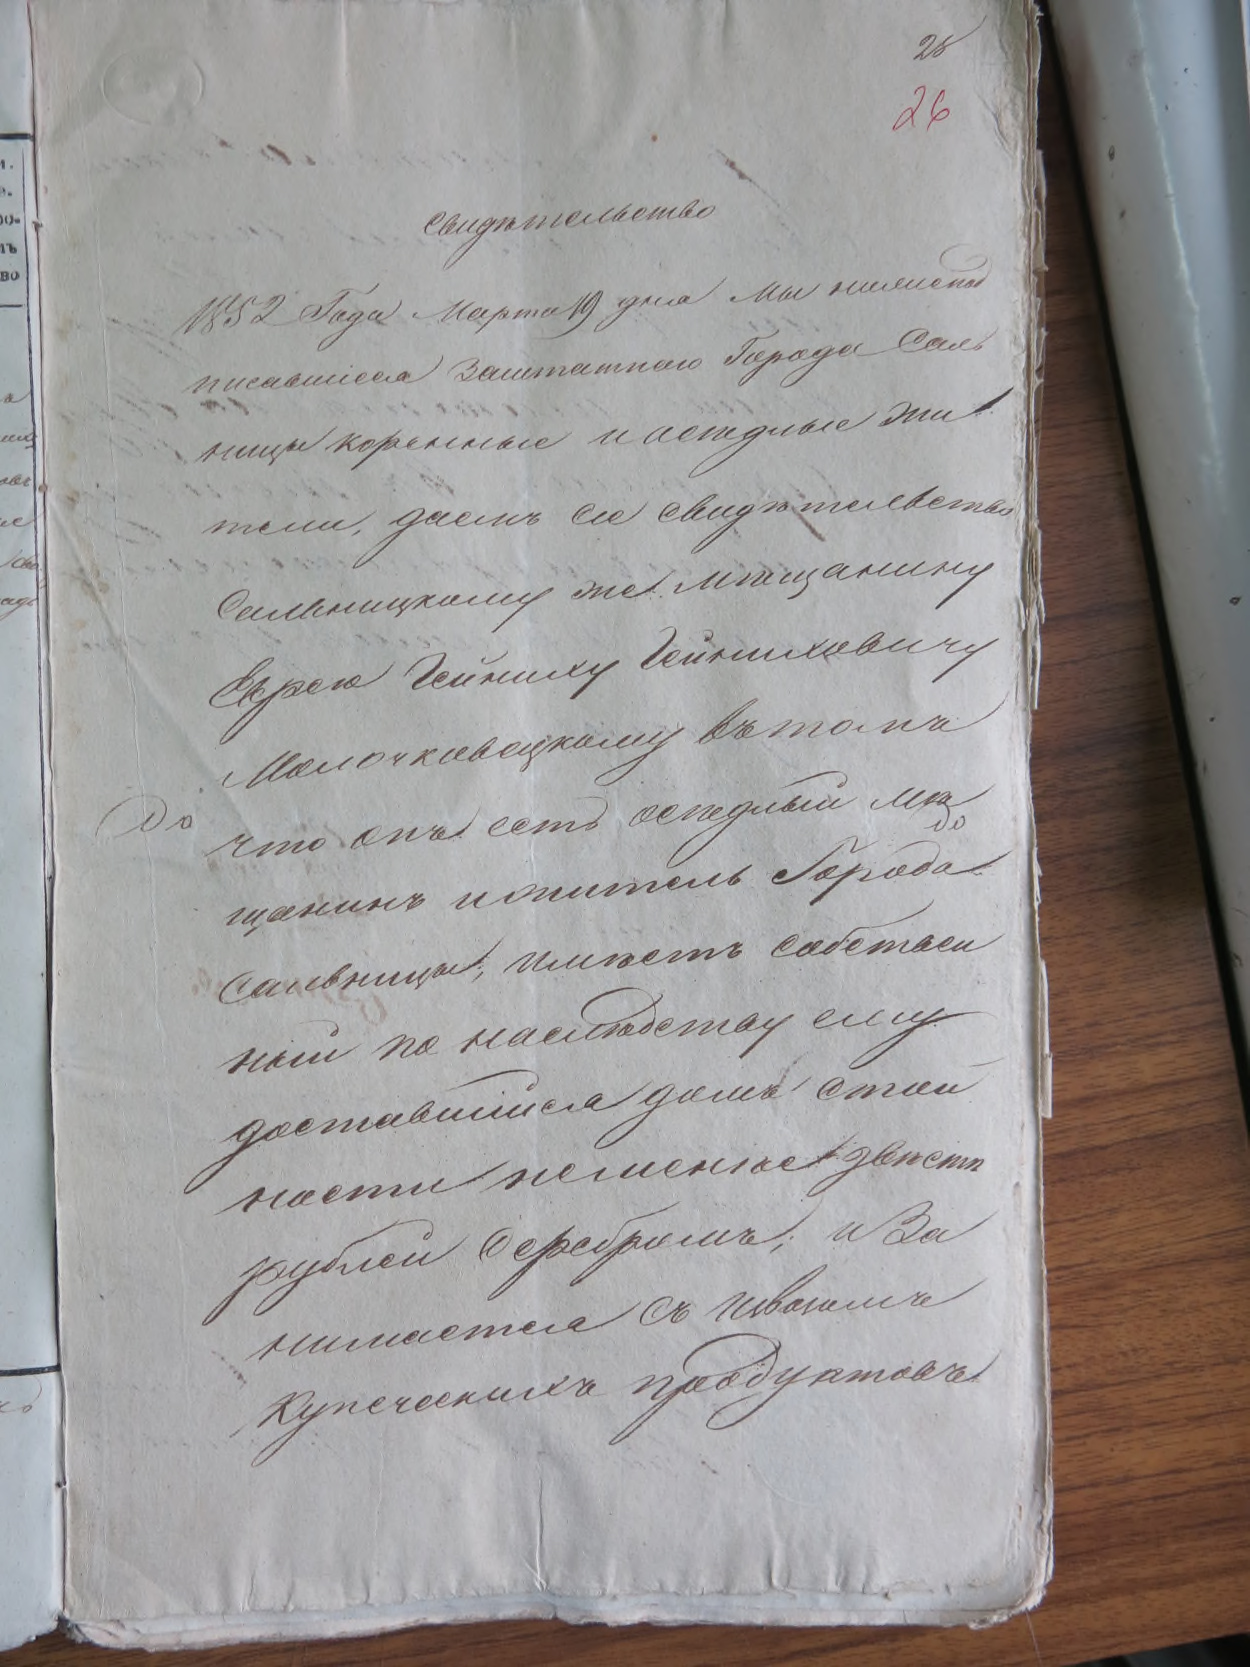 28
26
Свидѣтельство
1852 Года Марта 19 дня Мы нижепод
писавшіеся Заштатного Города Саль
ницы коренные и осѣдлые жи
тели, даемъ сіе свидѣтельство
Сальницкому же мѣщанину
Еврею Гейниху Гейниховичу
Молочковацкому въ томъ
что онъ есть осѣдлый мѣ
До
до
щанинъ и житель Города
Сальницы, имѣетъ собствен
ный по наслѣдству ему
доставшійся домъ стои
ности неменѣе двѣстѣ
рублей Серебромъ, и За
нимается съ
Купеческихъ продуктовъ